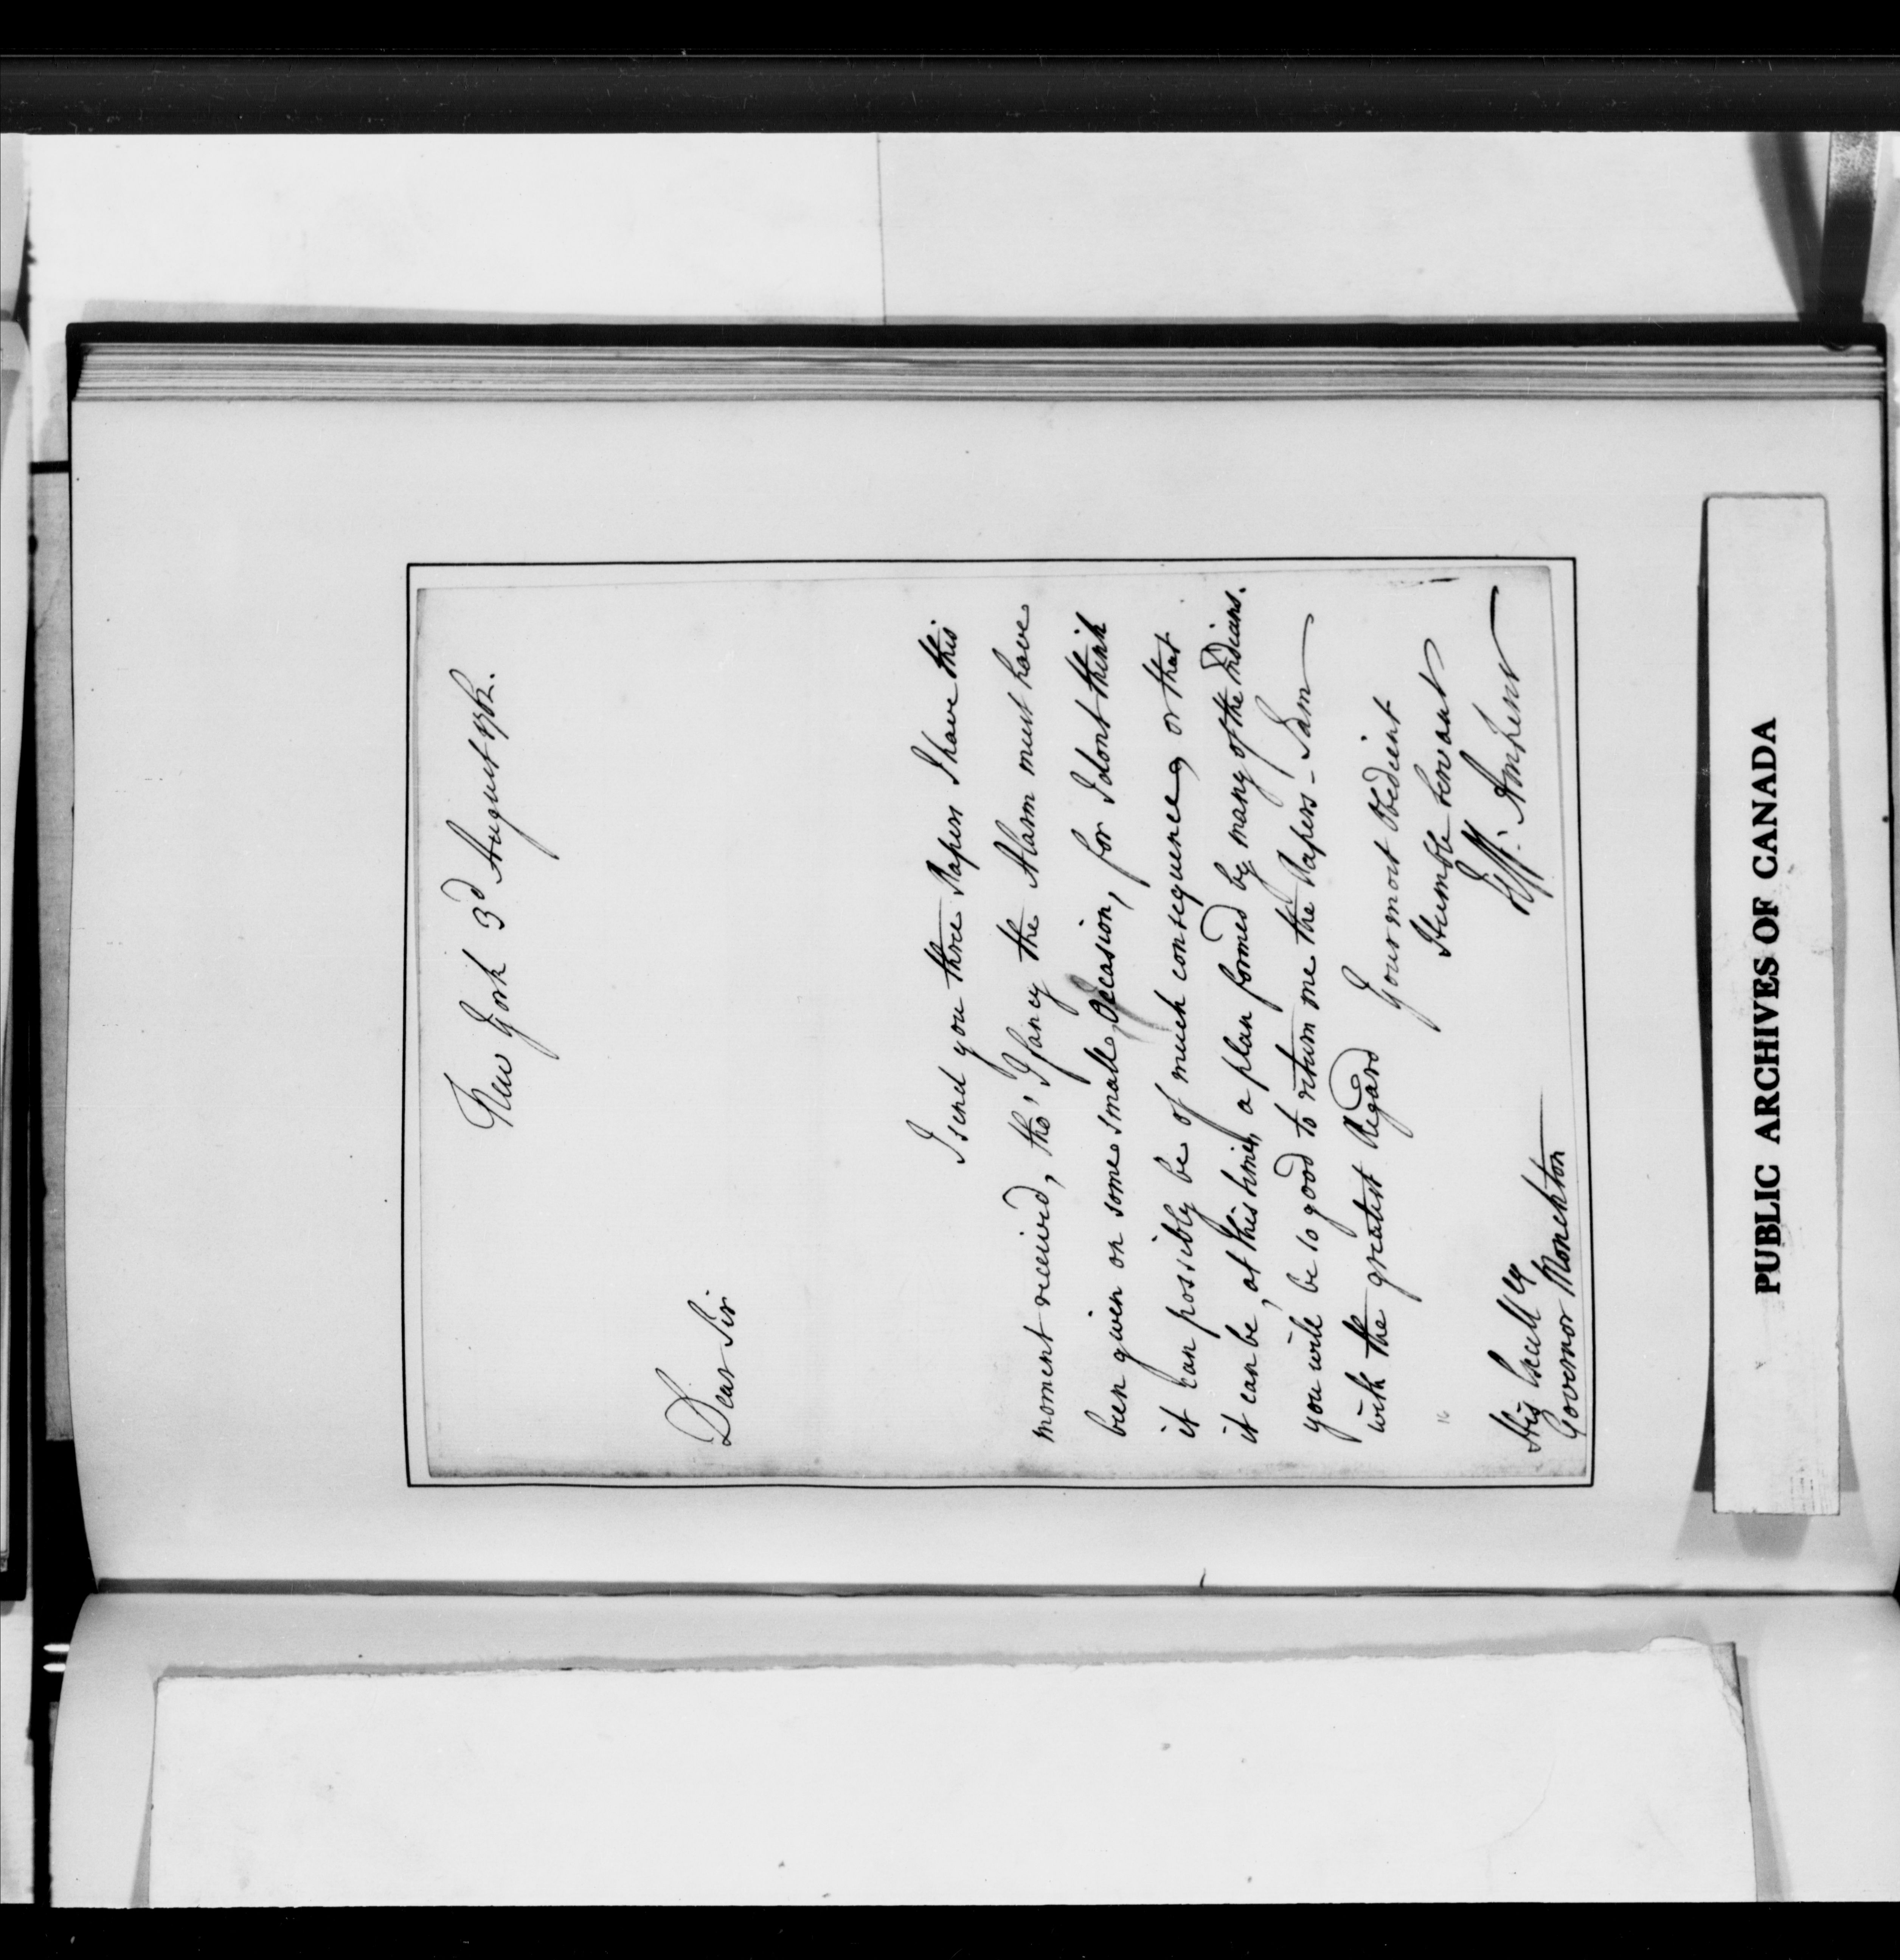 New York 3d August 1762.
Dear Sir
I send you three Papers I have this
moment received, tho' I fancy the Alarm must have
been given on some small Occasion, for I dont think
it can possibly be of much consequence, or that
it can be, at this time, a plan formed by many of the Indians.
you will be so good to return me the Papers - I am
with the greatest Regard
Your most Obedient
Humble Servant
Jeff: Amherst
His Excelly
Governor Monckton
16
PUBLIC ARCHIVES OF CANADA